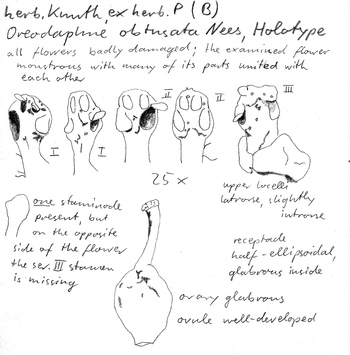 herb. Kunth, ex herb. P (B)
Oreodaphne obtusata Nees, Holotype
all flowers badly damaged; the examined flower
monstrous with many of its parts united with
each other
II
II
III
I
I
25 x
upper locelli
latrorse, slightly
introrse
one staminode
present, but
on the opposite
side of the flower
the ser. III stamen
is missing
receptacle
half-ellipsoidal,
glabrous inside
ovary glabrous
ovule well-developed